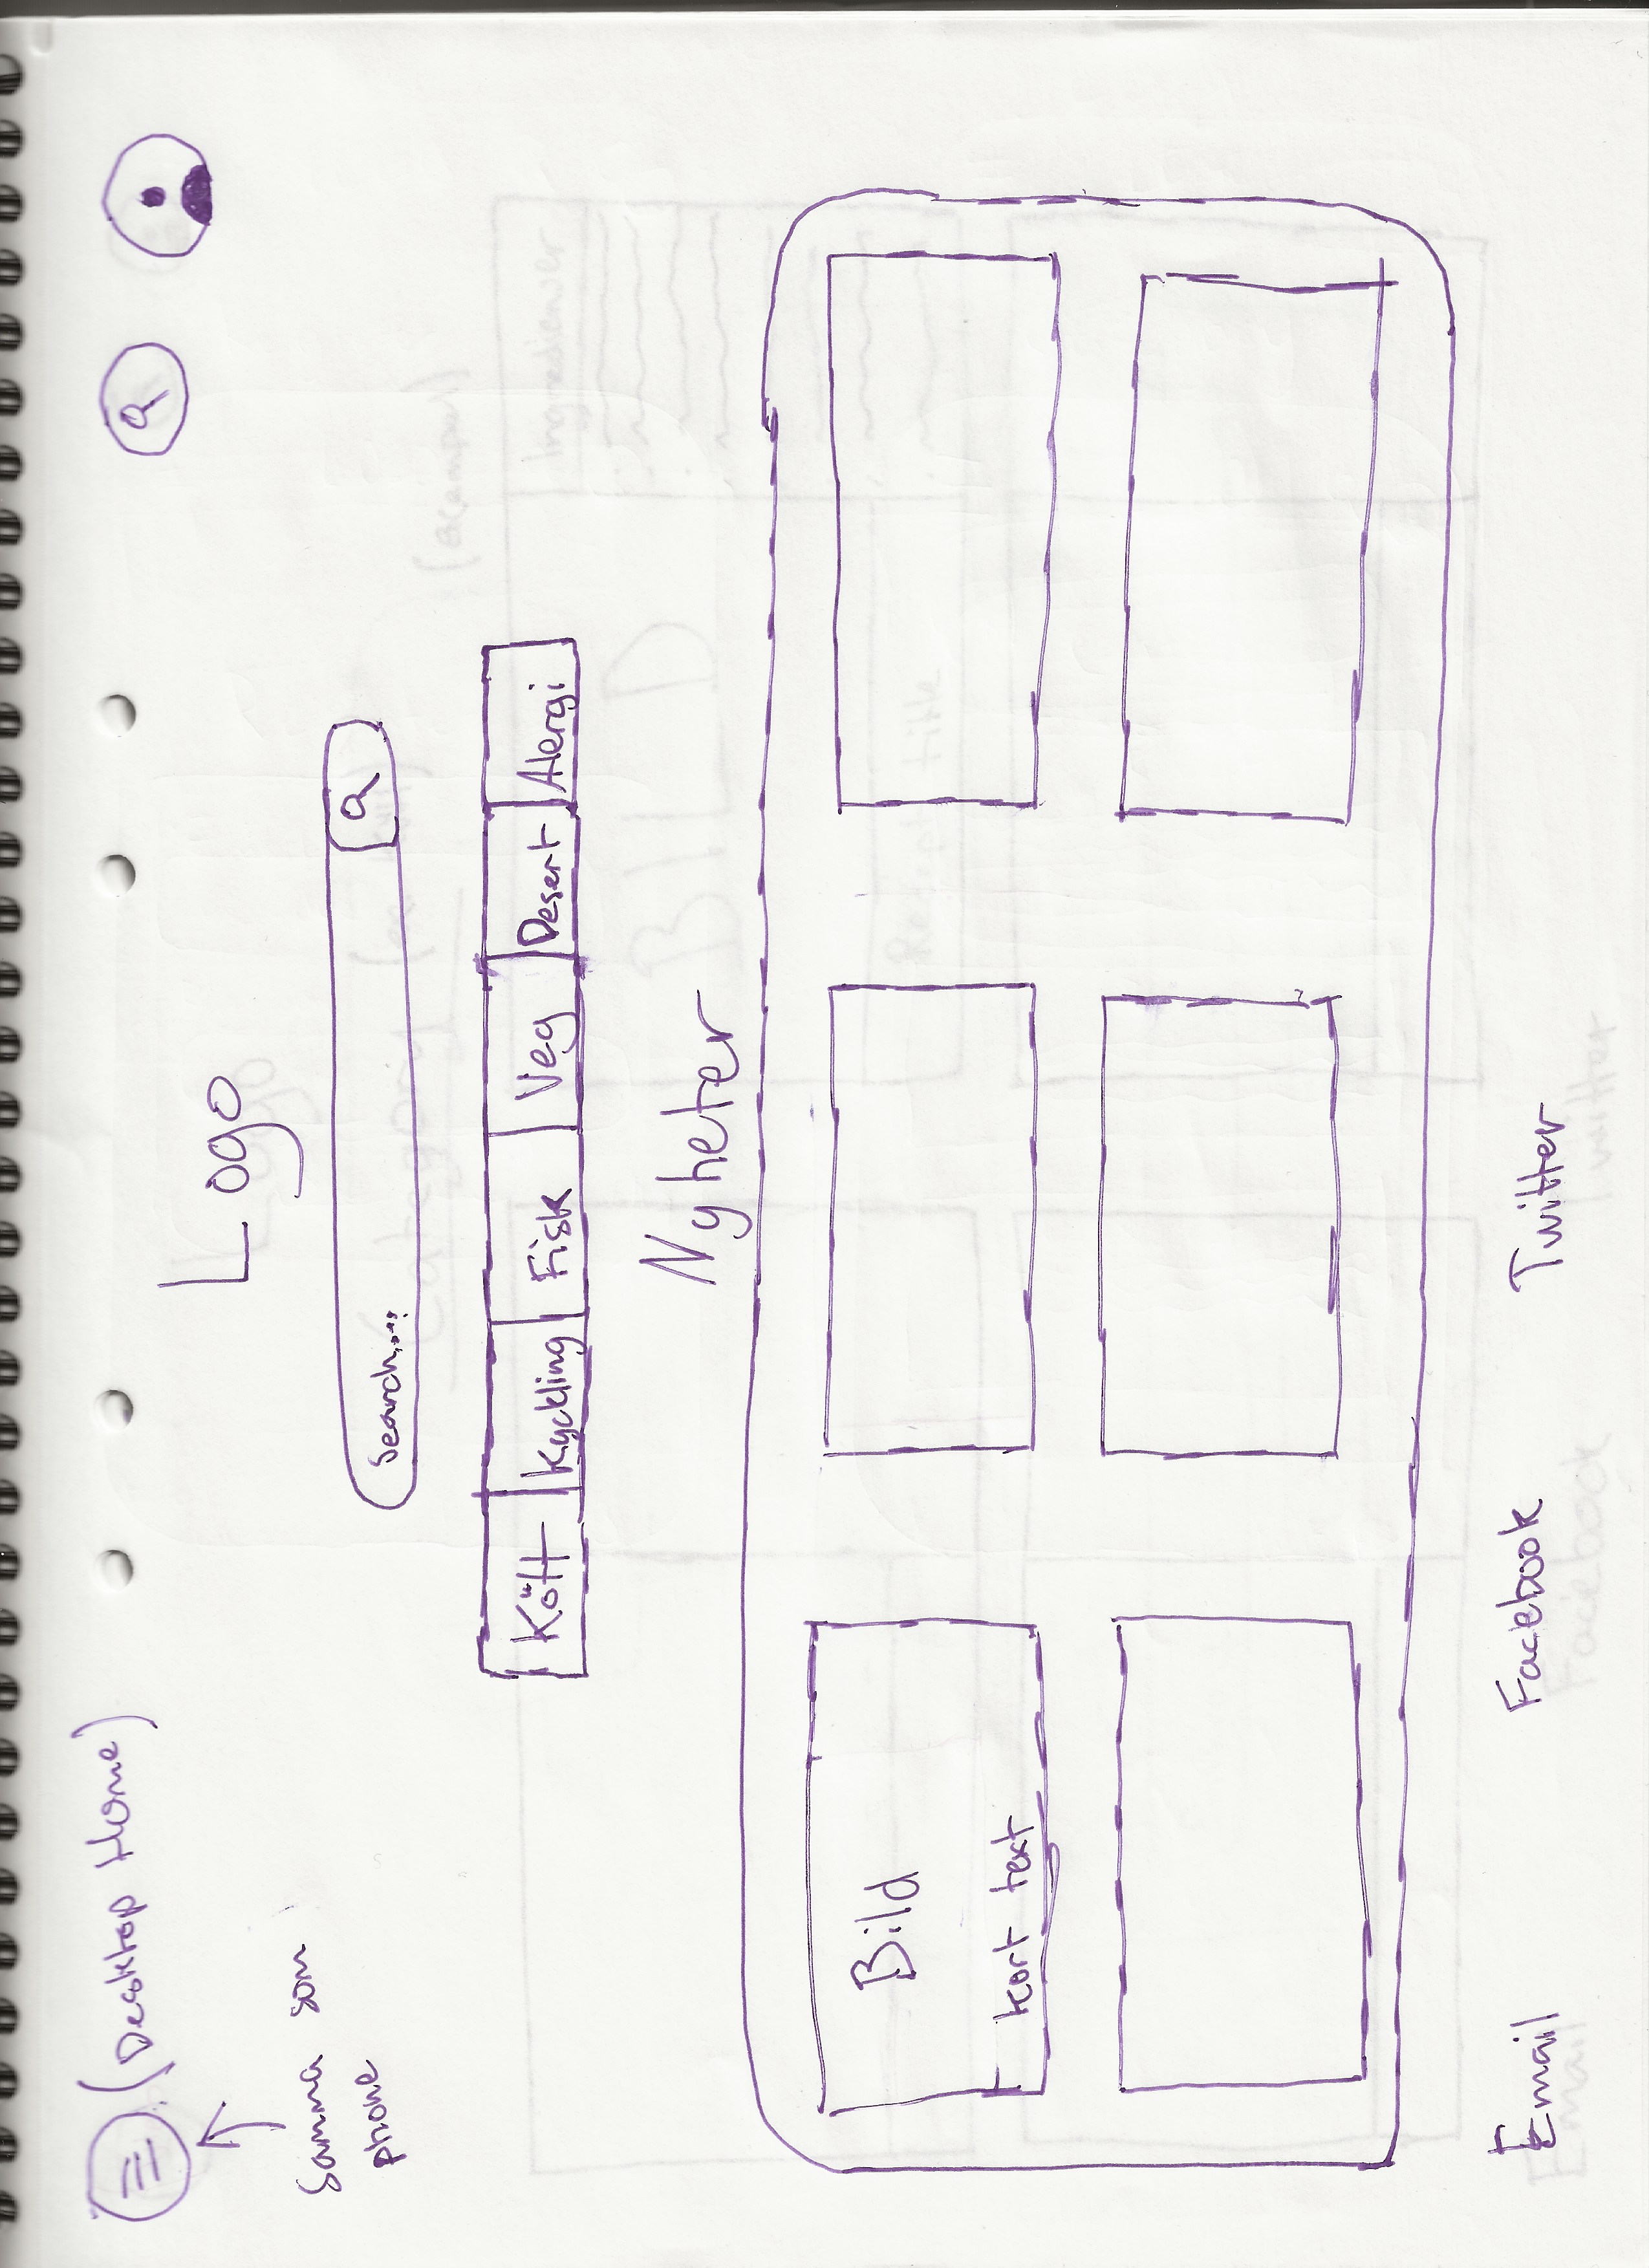 (Desktop Home)
Samma som
phone
Logo
Search...
Kött Kyckling Fisk Veg Desert Alergi
Nyheter
Bild
kort text
Email Facebook Twitter